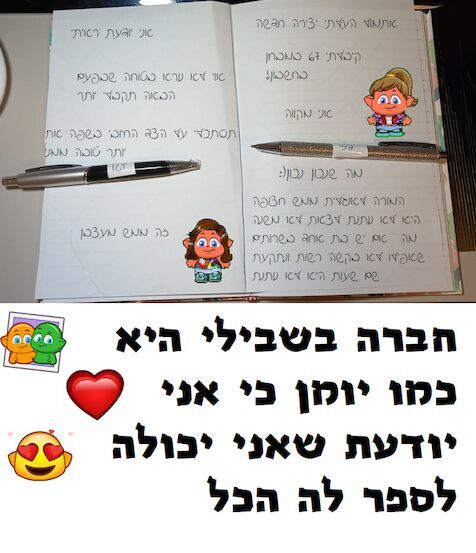 אתמול העלתי יצירה חדשה
קיבלתי 67 במבחן
בחשבון!
אני מקווה
מה שנכון נכון:(
המורה לאנגלית ממש חצופה
היא לא נתנת לצאת לא משנה
מה אם יש בת אחד בשרותים
שאפילו לא בקשה רשות ונתקעת
שם שעות היא לא נתנת
אני יודעת ראיתי
אוי לא נורא בטוחה שבפעם
הבאה תקבלי יותר
תסתכלי על הצד החיובי בשפה את
יותר טובה ממני
זה ממש מעצבן
חברה בשבילי היא
כמו יומן כי אני
יודעת שאני יכולה
לספר לה הכל